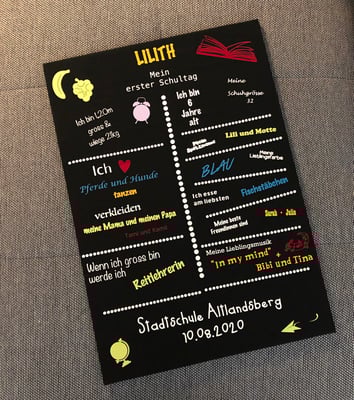 LILITH
Mein
erster Schultag
Ich bin 1,20m
gross &
wiege 21kg
Ich bin
6
Jahre
alt
Meine
Schuhgrösse
32
Lili und Motte
Ich
Pferde und Hunde
tanzen
verkleiden
meine Mama und meinen Papa
Tiere und Kamil
BLAU
Meine
Lieblingsfarbe
Ich esse
am liebsten
Fischstäbchen
Meine beste
Freundinnen sind
Sarah + Julia
Wenn ich gross bin
werde ich
Reitlehrerin
Meine Lieblingsmusik
"In my mind" +
Bibi und Tina
Stadtschule Altlandsberg
10.08.2020